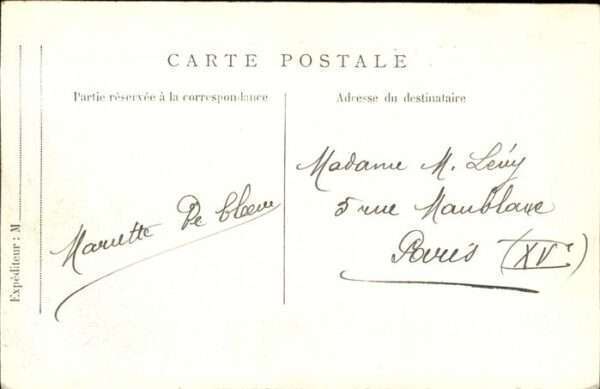 CARTE POSTALE
Partie réservée à la correspondance
Adresse du destinataire
Expéditeur : M
Mariette De
Madame M. Lévy
5 rue Maublanc
Paris (XVe)